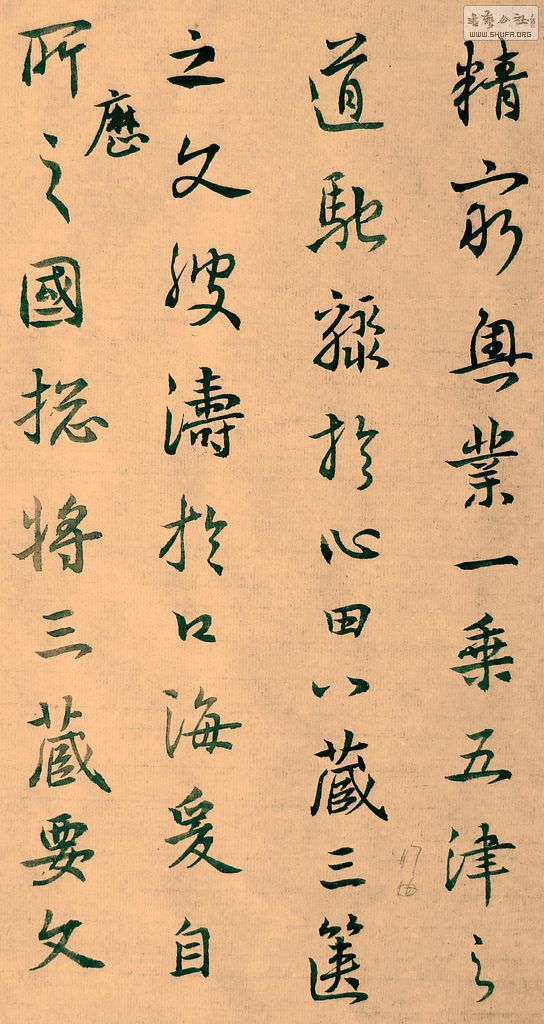 書藝公社
WWW.SHUFA.ORG
精窮奧業一乘五津之
道馳驟於心田八藏三篋
之文波濤於口海爰自
所歷之國揔將三藏要文